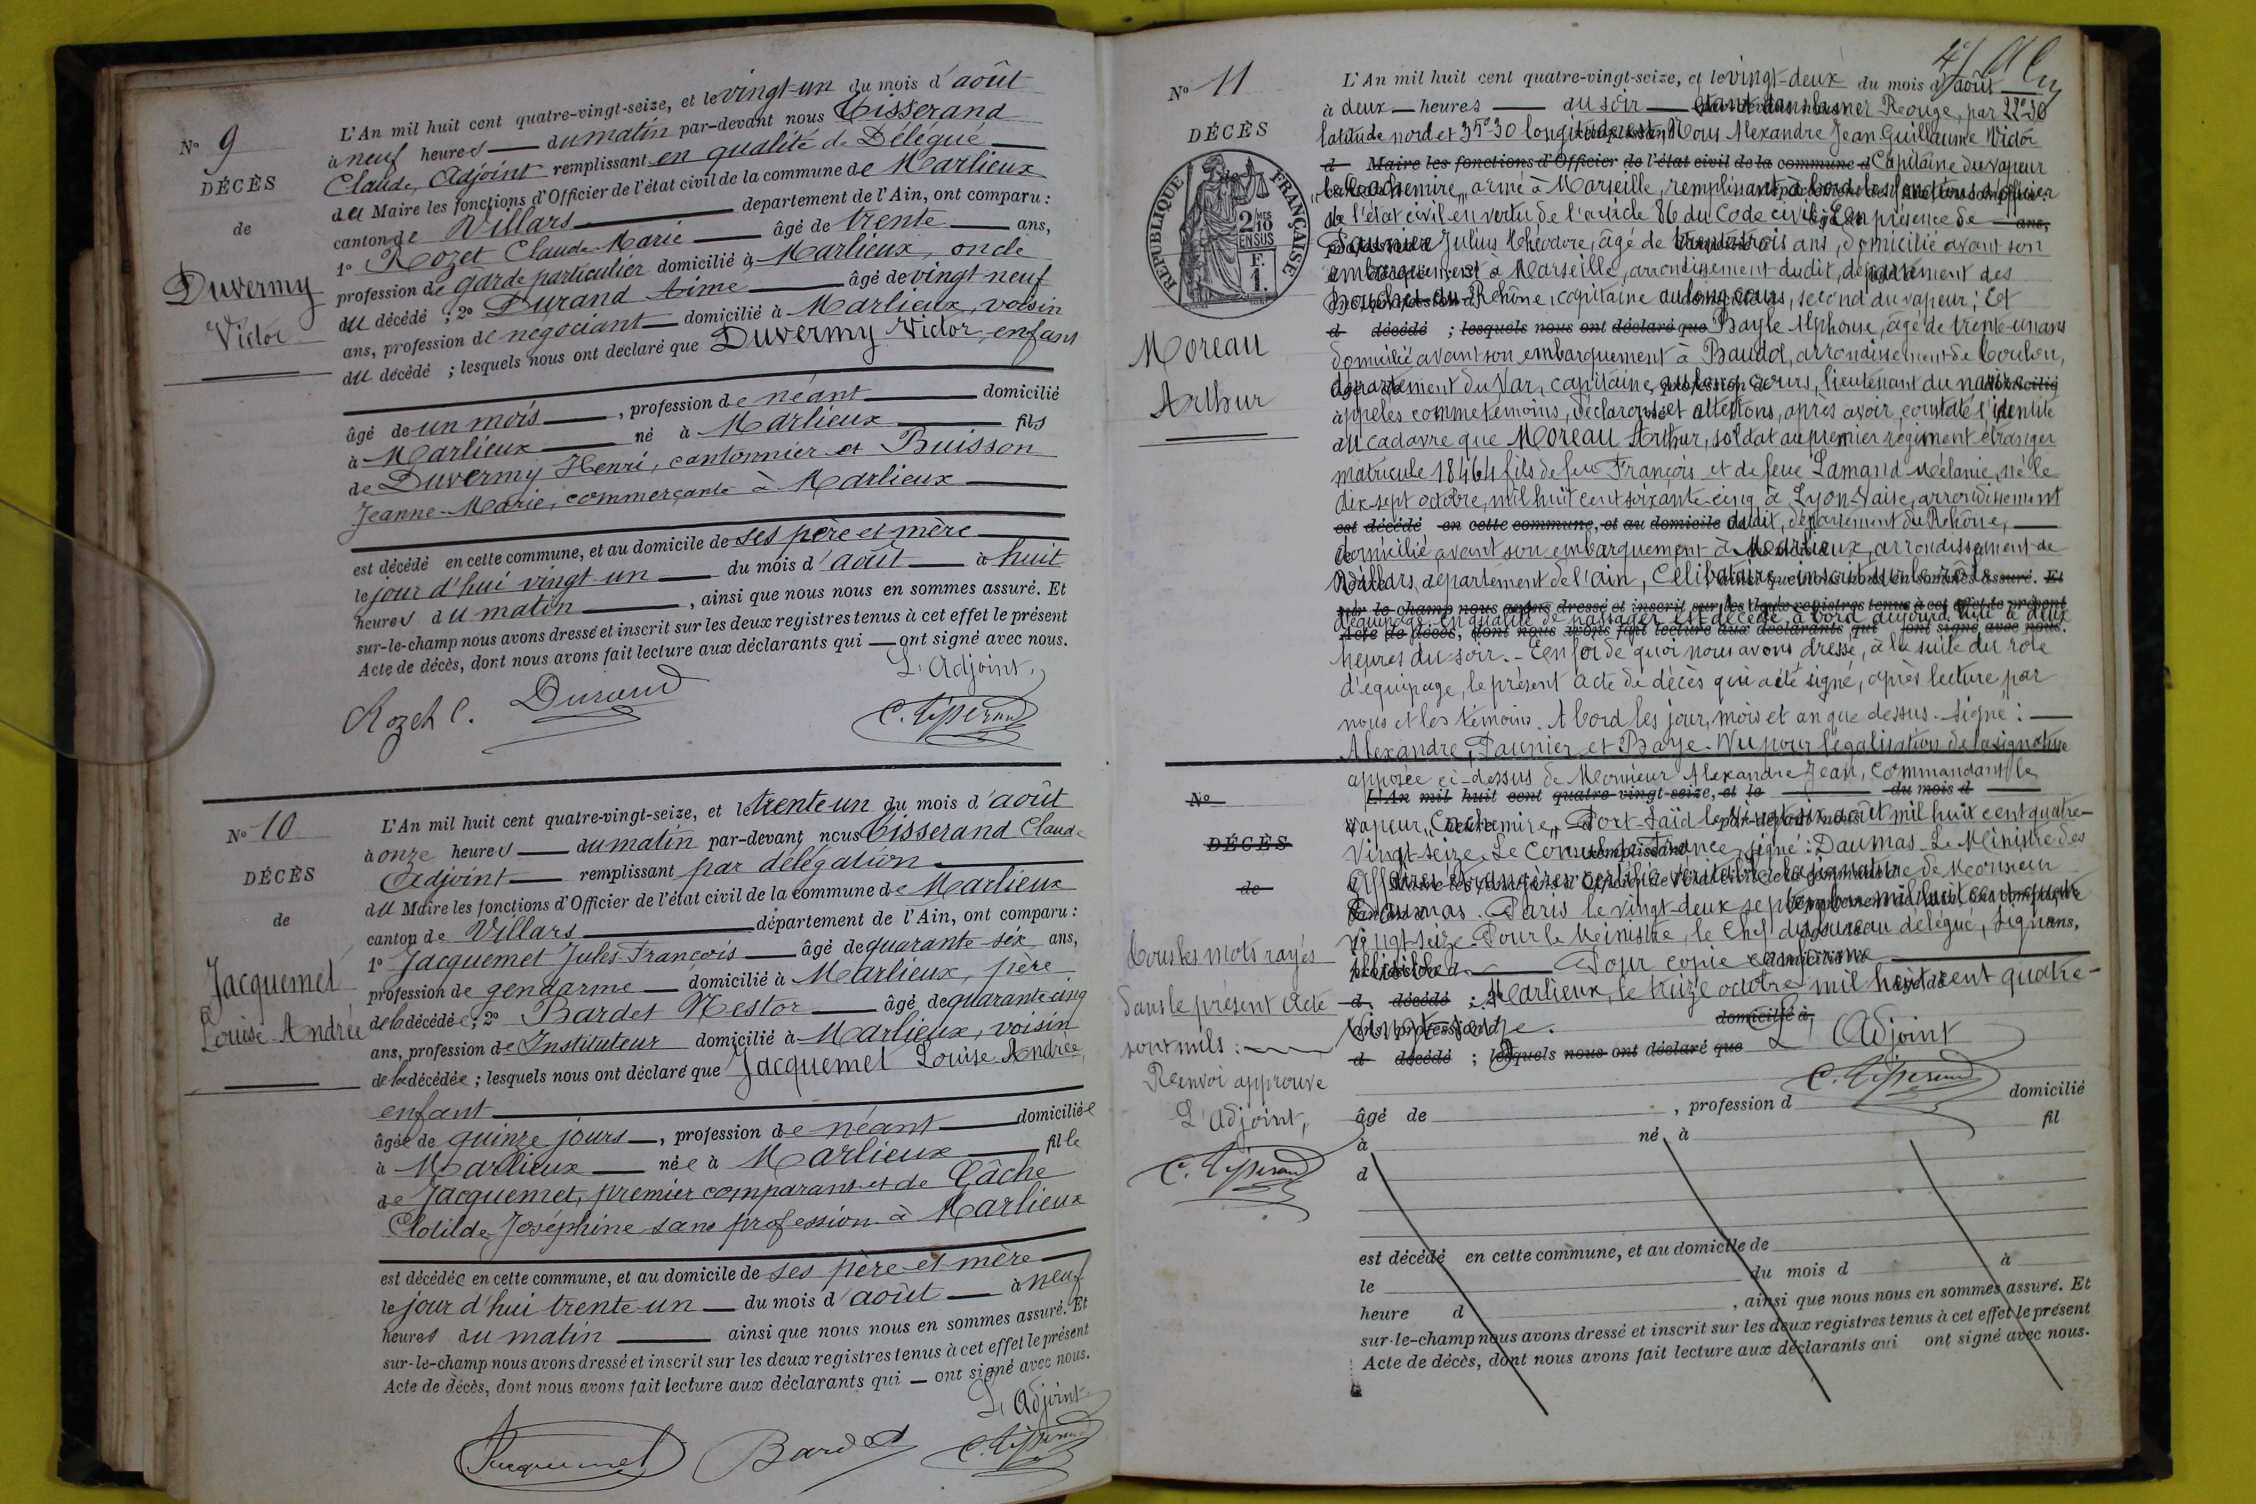 N° 9
DÉCÈS
de
Duvermy
Victor
L'An mil huit cent quatre-vingt-seize, et le vingt-un du mois d'août
à neuf heures du matin par-devant nous Tisserand
Claude, Adjoint remplissant en qualité de Délégué
du Maire les fonctions d'Officier de l'état civil de la commune de Marlieux
canton de Villars département de l'Ain, ont comparu :
1° Rozet Claude-Marie âgé de trente ans,
profession de garde particulier domicilié à Marlieux, oncle
du décédé ; 2° Durand Aimé âgé de vingt neuf
ans, profession de négociant domicilié à Marlieux, voisin
du décédé ; lesquels nous ont déclaré que Duvermy Victor, enfant
âgé de un mois, profession de néant domicilié
à Marlieux né à Marlieux fils
de Duvermy Henri, cantonnier et Buisson
Jeanne-Marie, commerçante à Marlieux
est décédé en cette commune, et au domicile de ses père et mère
le jour d'hui vingt un du mois d'août à huit
heures du matin, ainsi que nous nous en sommes assuré. Et
sur-le-champ nous avons dressé et inscrit sur les deux registres tenus à cet effet le présent
Acte de décès, dont nous avons fait lecture aux déclarants qui ont signé avec nous.
L'Adjoint,
Rozet C. Durand C. Tisserand
N° 10
DÉCÈS
de
Jacquemet
Louise Andrée
L'An mil huit cent quatre-vingt-seize, et le trente un du mois d'août
à onze heures du matin par-devant nous Tisserand Claude
Adjoint remplissant par délégation
du Maire les fonctions d'Officier de l'état civil de la commune de Marlieux
canton de Villars département de l'Ain, ont comparu :
1° Jacquemet Jules François âgé de quarante six ans,
profession de gendarme domicilié à Marlieux, père
de la décédée ; 2° Bardet Nestor âgé de quarante cinq
ans, profession de Instituteur domicilié à Marlieux, voisin
de la décédée ; lesquels nous ont déclaré que Jacquemet Louise Andrée,
enfant
âgée de quinze jours, profession de néant domiciliée
à Marlieux née à Marlieux fille
de Jacquemet, premier comparant et de Câche
Clotilde Joséphine sans profession à Marlieux
est décédée en cette commune, et au domicile de ses père et mère
le jour d'hui trente un du mois d'août à neuf
heures du matin ainsi que nous nous en sommes assuré. Et
sur-le-champ nous avons dressé et inscrit sur les deux registres tenus à cet effet le présent
Acte de décès, dont nous avons fait lecture aux déclarants qui ont signé avec nous.
L'Adjoint
Jacquemet Bardet C. Tisserand
N° 11
DÉCÈS
RÉPUBLIQUE FRANÇAISE
2/10 EN SUS
F.
1.
Moreau
Arthur
L'An mil huit cent quatre-vingt-seize, et le vingt-deux du mois d'août
à deux heures du soir étant dans la mer Rouge, par 22°30
latitude nord et 35°30 longitude est, Nous Alexandre Jean Guillaume Victor
d Maire les fonctions d'Officier de l'état civil de la commune d Capitaine du vapeur
"Cachemire" armé à Marseille, remplissant à bord les fonctions d'officier
de l'état civil en vertu de l'article 86 du Code civil, En présence de
Saunier Julius Théodore, âgé de trente trois ans, domicilié avant son
embarquement à Marseille, arrondissement dudit, département des
Bouches-du-Rhône, capitaine au long cours, second du vapeur ; Et
d décédé ; lesquels nous ont déclaré que Bayle Alphonse, âgé de trente-un ans
domicilié avant son embarquement à Bandol, arrondissement de Toulon,
département du Var, capitaine au long cours, lieutenant du navire
appelés comme témoins, déclarons et attestons, après avoir constaté l'identité
du cadavre que Moreau Arthur, soldat au premier régiment étranger
matricule 18464 fils de feu François et de feue Lamand Mélanie, né le
dix-sept octobre, mil huit cent soixante-cinq à Lyon-Vaise, arrondissement
est décédé en cette commune, et au domicile de dudit, département du Rhône,
domicilié avant son embarquement à Marlieux, arrondissement de
Villars, département de l'ain, Célibataire, inscrit sur le rôle
sur-le-champ nous avons dressé et inscrit sur les deux registres tenus à cet effet le présent
d'équipage, en qualité de passager est décédé à bord aujourd'hui à deux
Acte de décès, dont nous avons fait lecture aux déclarants qui ont signé avec nous.
heures du soir. - En foi de quoi nous avons dressé, à la suite du rôle
d'équipage, le présent acte de décès qui a été signé, après lecture par
nous et les témoins. A bord les jour, mois et an que dessus. Signé :
Alexandre, Saunier et Bayle. Vu pour légalisation de la signature
apposée ci-dessus de Monsieur Alexandre Jean, Commandant le
N°
L'An mil huit cent quatre-vingt-seize, et le du mois d
vapeur "Cachemire" Port-Saïd le vingt six août mil huit cent quatre-
DÉCÈS
vingt-seize. Le Consul de France, signé : Daumas. Le Ministre des
de
Affaires étrangères certifie véritable la signature de Monsieur
Daumas. Paris le vingt-deux septembre mil huit cent quatre
vingt-seize. Pour le Ministre, le Chef du bureau délégué, signé
illisible. Pour copie conforme
Marlieux, le treize octobre mil huit cent quatre-
vingt-seize.
domicilié à
d décédé ; lesquels nous ont déclaré que L'Adjoint
C. Tisserand
Tous les mots rayés
dans le présent Acte
sont nuls :
Renvoi approuvé
L'Adjoint,
C. Tisserand
âgé de , profession d domicilié
à né à fil
d
est décédé en cette commune, et au domicile de
le du mois d à
heure d , ainsi que nous nous en sommes assuré. Et
sur-le-champ nous avons dressé et inscrit sur les deux registres tenus à cet effet le présent
Acte de décès, dont nous avons fait lecture aux déclarants qui ont signé avec nous.